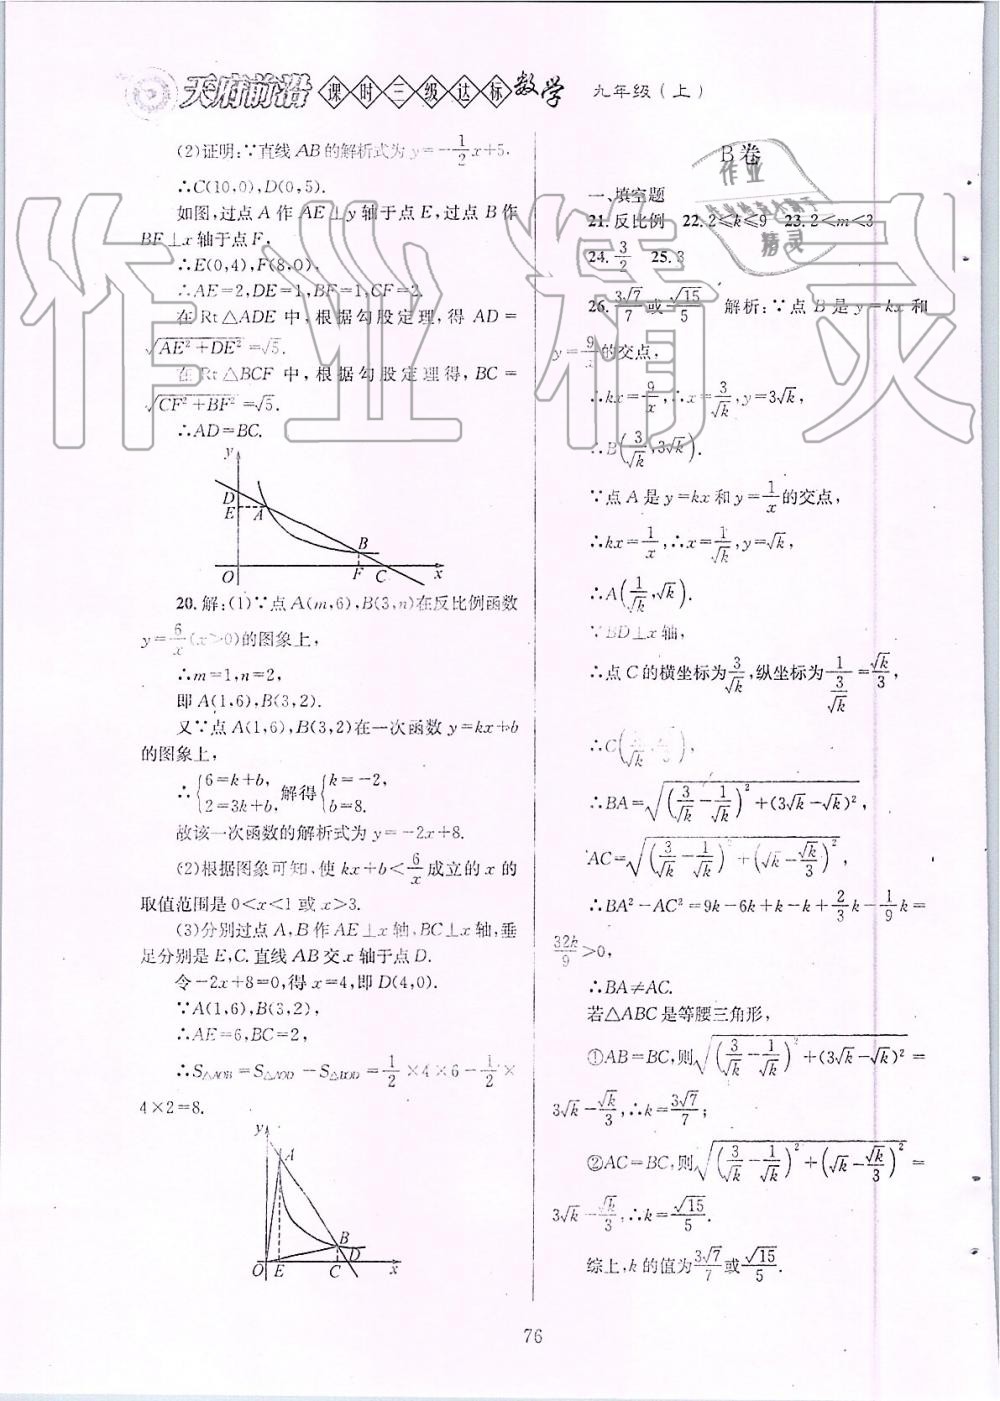 天府前沿 课时三级达标 数学 九年级（上）
(2)证明:∵直线 AB 的解析式为 y=-1/2x+5.
∴C(10,0),D(0,5).
如图,过点 A 作 AE⊥y 轴于点 E,过点 B 作
BF⊥x 轴于点 F,
∴E(0,4),F(8,0),
∴AE=2,DE=1,BF=1,CF=2.
在 Rt△ADE 中,根据勾股定理,得 AD=
√(AE²+DE²)=√5.
在 Rt△BCF 中,根据勾股定理得,BC=
√(CF²+BF²)=√5.
∴AD=BC.
y
D
E A
B
O F C x
20.解:(1)∵点 A(m,6),B(3,n)在反比例函数
y=6/x(x>0)的图象上,
∴m=1,n=2,
即 A(1,6),B(3,2).
又∵点 A(1,6),B(3,2)在一次函数 y=kx+b
的图象上,
∴{6=k+b, 2=3k+b, 解得{k=-2, b=8.
故该一次函数的解析式为 y=-2x+8.
(2)根据图象可知,使 kx+b<6/x成立的 x 的
取值范围是 0<x<1 或 x>3.
(3)分别过点 A,B 作 AE⊥x 轴,BC⊥x 轴,垂
足分别是 E,C.直线 AB 交 x 轴于点 D.
令-2x+8=0,得 x=4,即 D(4,0).
∵A(1,6),B(3,2),
∴AE=6,BC=2,
∴S△AOB=S△AOD-S△BOD=1/2×4×6-1/2×
4×2=8.
y
A
B
D
O E C x
B卷
一、填空题
21.反比例 22.2≤k≤9 23.2<m<3
24.3/2 25.3
26.3√7/7或√15/5 解析:∵点 B 是 y=kx 和
y=9/x的交点,
∴kx=9/x,∴x=3/√k,y=3√k,
∴B(3/√k,3√k).
∵点 A 是 y=kx 和 y=1/x的交点,
∴kx=1/x,∴x=1/√k,y=√k,
∴A(1/√k,√k).
∵BD⊥x 轴,
∴点 C 的横坐标为3/√k,纵坐标为1/(3/√k)=√k/3,
∴C(3/√k,√k/3),
∴BA=√((3/√k-1/√k)²+(3√k-√k)²),
AC=√((3/√k-1/√k)²+(√k-√k/3)²),
∴BA²-AC²=9k-6k+k-k+2/3k-1/9k=
32k/9>0,
∴BA≠AC.
若△ABC 是等腰三角形,
①AB=BC,则√((3/√k-1/√k)²+(3√k-√k)²)=
3√k-√k/3,∴k=3√7/7;
②AC=BC,则√((3/√k-1/√k)²+(√k-√k/3)²)=
3√k-√k/3,∴k=√15/5.
综上,k 的值为3√7/7或√15/5.
76
作业精灵
作业
精灵